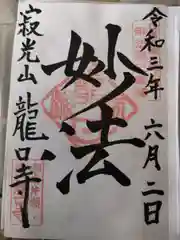 令和三年 六月二日
妙法
寂光山 龍口寺